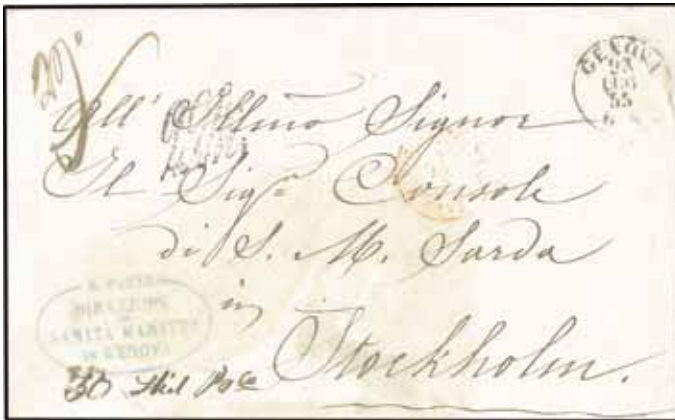 GENOVA
23
LUG
55
All' Illmo Signor
Il Sigr Console
di S. M. Sarda
in
Stockholm.
DIREZIONE
DI
SANITÀ MARITTA
IN GENOVA
30 Skil Bco